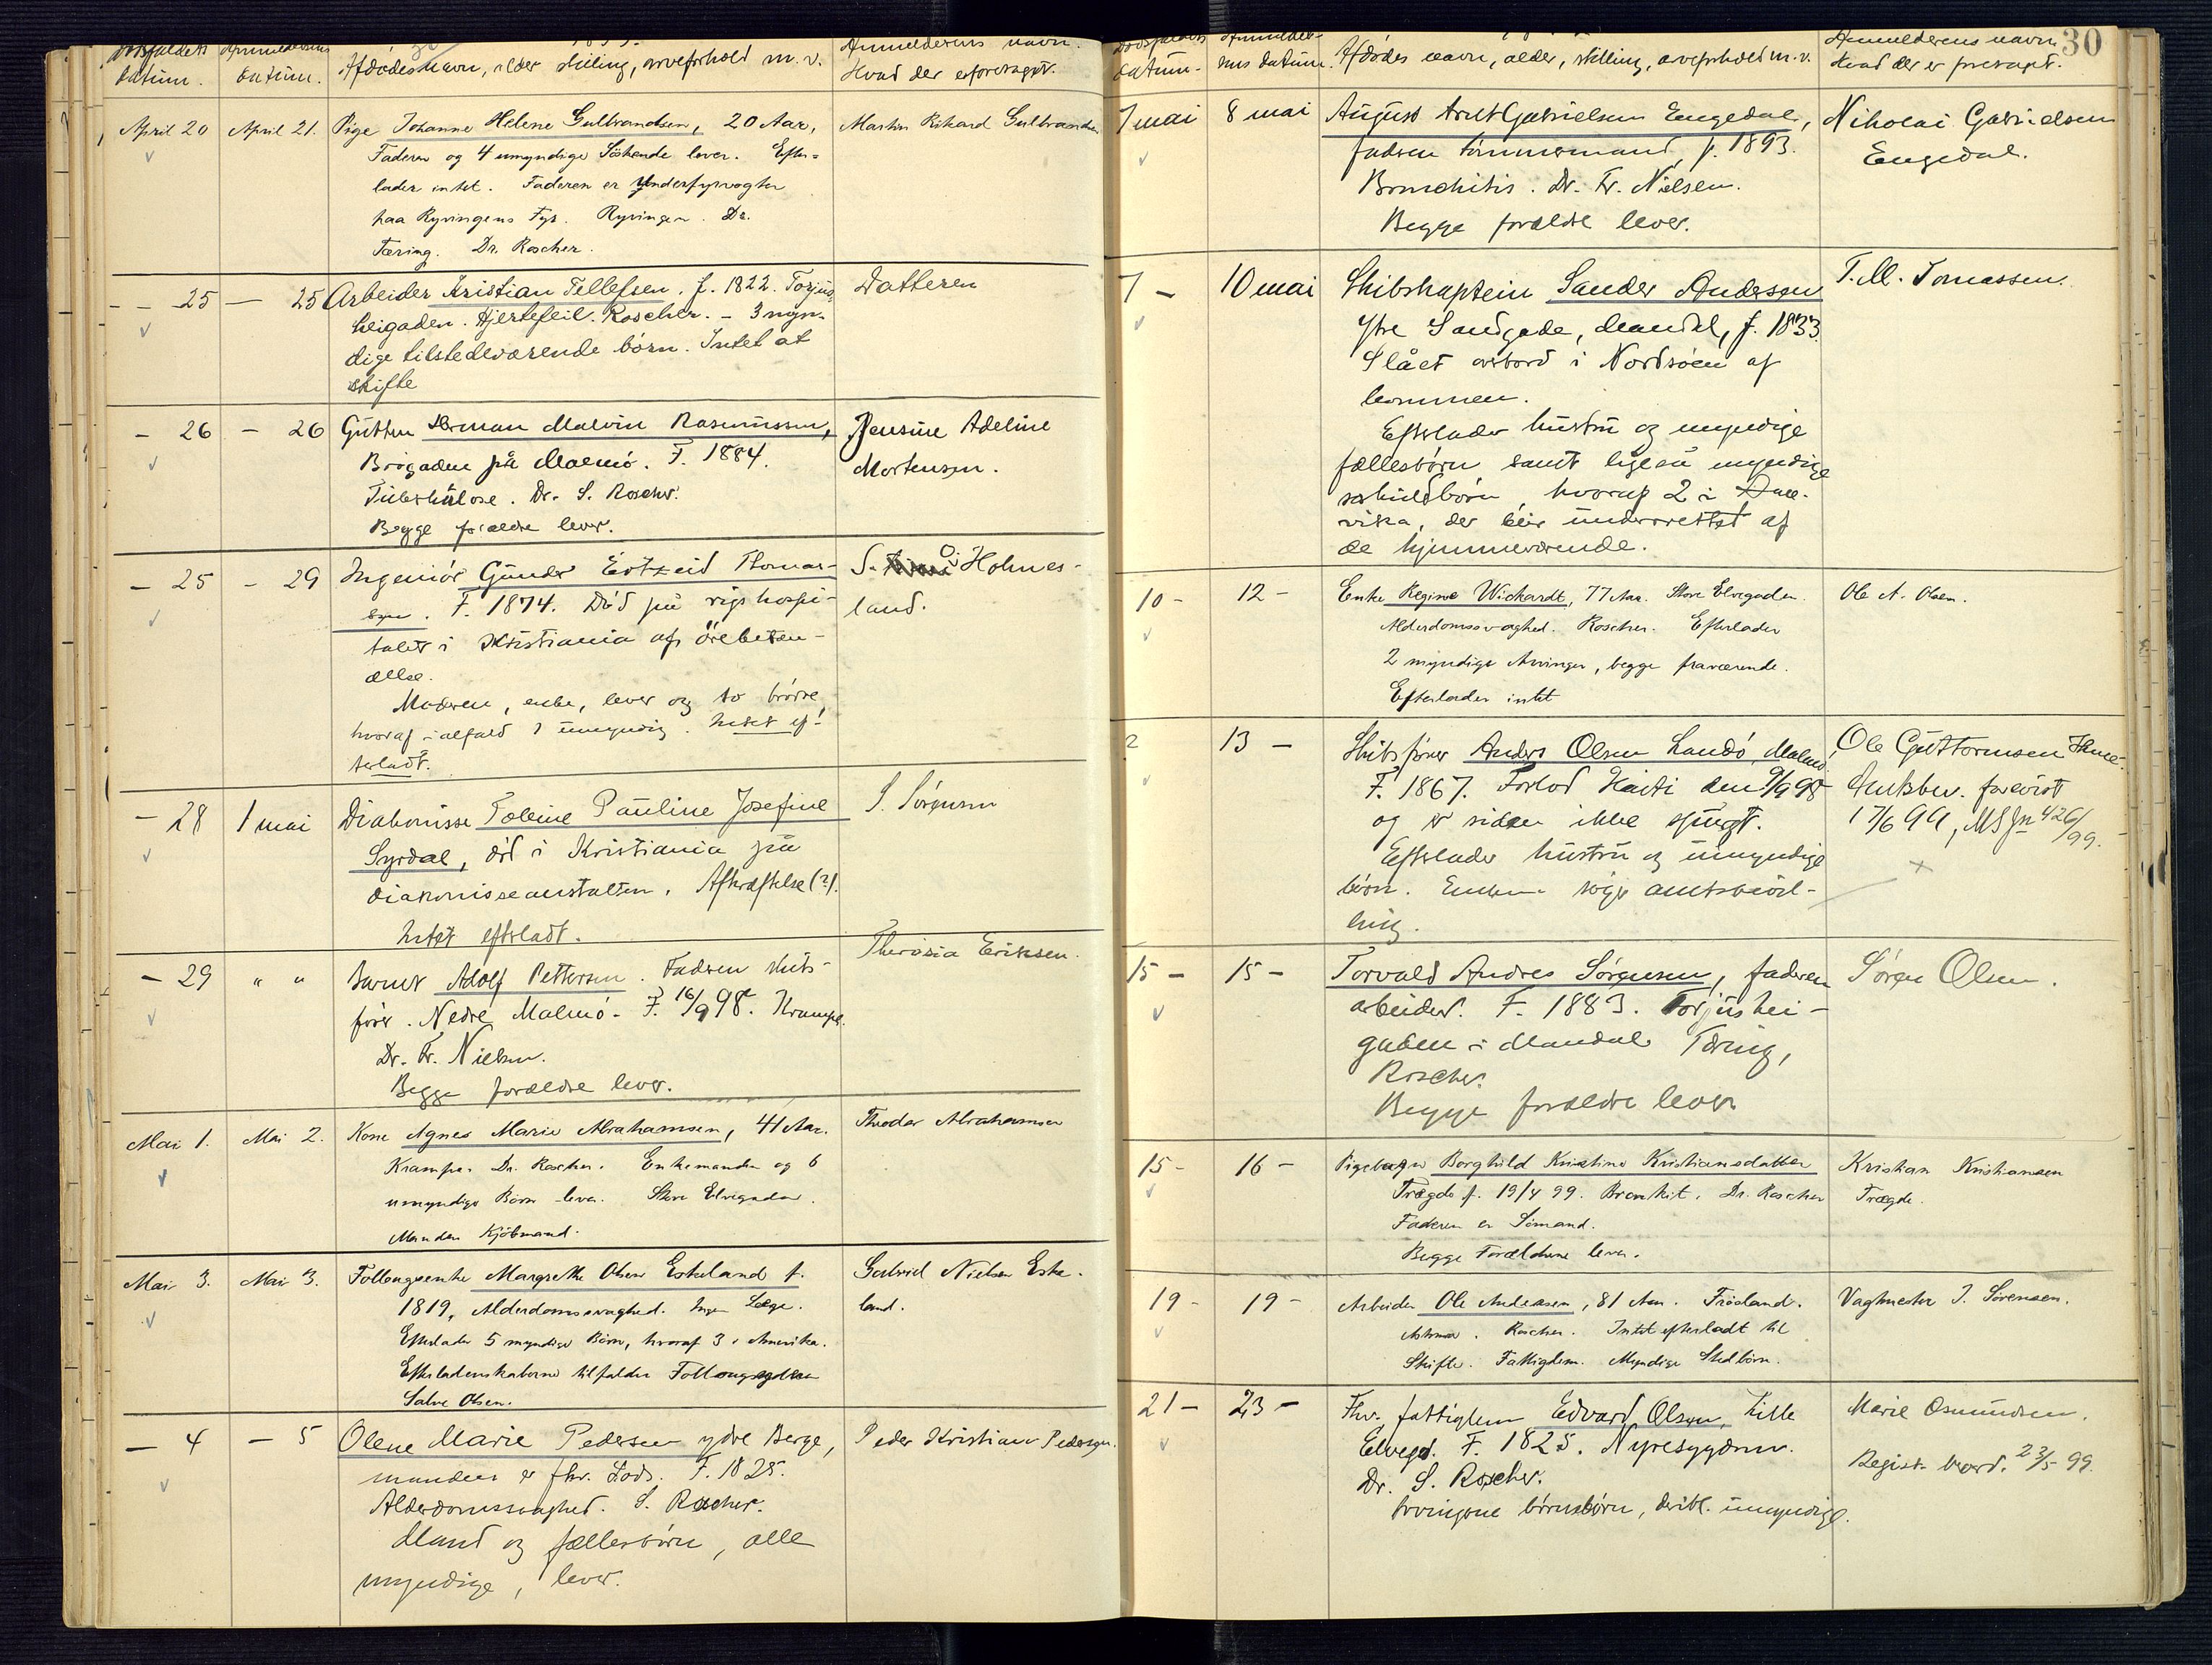 Dødsfaldets Anmeldelsens 1899. Anmelderens navn.
datum. datum. Afdødes navn, alder, stilling, arveforhold m. v. Hvad der er foretaget.
April 20 April 21. Pige Johanne Helene Gulbrandsen, 20 Aar, Martin Rikard Gulbrandsen
Faderen og 4 umyndige Söskende lever. Efter-
lader intet. Faderen er Underfyrvogter
paa Ryvingens Fyr. Ryvingen. Dr.
Tæring. Dr. Roscher.
— 25 — 25 Arbeider Kristian Tellefsen. f. 1822. Torjus- Datteren
heigaden. Hjertefeil. Roscher. - 3 myn-
dige tilstedeværende børn. Intet at
skifte
— 26 — 26 Gutten Herman Malvin Rasmussen, Jensine Adeline
Brogaden på Malmö. F. 1884. Mortensen.
Tuberkulose. Dr. S. Roscher.
Begge forældre lever.
— 25 — 29 Ingeniør Gunder Eotzeid Thomas- S. O. Holmes-
sen. F. 1874. Død på rigshospi- land.
talet i Kristiania af örebeten-
ælse.
Moderen, enke, lever og to brødre,
hvoraf ialfald 1 umyndig. Intet ef-
terladt.
— 28 1 mai Diakonisse Toleine Pauline Josefine S. Sørensen
Syrdal, död i Kristiania på
diakonisseanstalten. Afkræftelse (?).
Intet efterladt.
— 29 " " Barnet Adolf Pettersen. Faderen skibs- Therasia Eriksen.
fører. Nedre Malmö. F. 16/9 98. Krampe.
Dr. Fr. Nielsen.
Begge forældre lever.
Mai 1. Mai 2. Kone Agnes Marie Abrahamsen, 41 Aar. Theodor Abrahamsen
Krampe. Dr. Roscher. Enkemanden og 6
umyndige Børn lever. Store Elvegaden.
Manden Kjöbmand.
Mai 3. Mai 3. Follougsenke Margrethe Olsen Eskeland f. Gabriel Nielsen Eske-
1819, Alderdomssvaghed. Ingen Læge. land.
Efterlader 5 myndige Børn, hvoraf 3 i Amerika.
Efterladenskaberne tilfalder Follougsyderen
Salve Olsen.
— 4 — 5 Olene Marie Pedersen ydre Berge, Peder Kristian Pedersen.
manden er fhv. Lods. F. 1825.
Alderdomssvaghed. S. Roscher.
Mand og fællesbørn, alle
myndige, lever.
30
Dødsfaldets Anmeldel- Anmelderens navn
datum. sens datum. Afdødes navn, alder, stilling, arveforhold m. v. Hvad der er foretaget.
7 mai 8 mai August Arnt Gabrielsen Engedal, Nikolai Gabrielsen
faderen tømmermand, f. 1893. Engedal.
Bronchitis. Dr. Fr. Nielsen.
Begge forældre lever.
7 — 10 mai Skibskaptein Sander Andersen T. M. Tomassen.
Ytre Sandgade, Mandal, f. 1833.
Slået overbord i Nordsøen af
bommen.
Efterlader hustru og umyndige
fællesbørn samt ligeså myndige
særkuldbørn, hvoraf 2 i
der blir underrettet af
de hjemmeværende.
10 - 12 - Enke Regine Wichardt, 77 Aar. Store Elvegaden. Ole A. Olsen.
Alderdomssvaghed. Roscher. Efterlader
2 myndige Arvinger, begge fraværende.
Efterlader intet
13 — Skibsfører Anders Olsen Landö, Malmö. Ole Guttormsen
F. 1867. Forlod Haiti den 9/9 98 forevist
og er siden ikke spurgt. 17/6 99, 426/99.
Efterlader hustru og umyndige
børn. Enken søger amtsbevil-
ling.
15 — 15 — Torvald Andres Sørensen, faderen Søren Olsen.
arbeider. F. 1883. Torjushei-
gaden i Mandal. Tæring,
Roscher.
Begge forældre lever
15 - 16 - Pigebarn Borghild Kristine Kristiansdatter Kristian Kristiansen
Trægde f. 19/4 99. Bronkit. Dr. Roscher Trægde.
Faderen er Sömand.
Begge Forældrene lever.
19 - 19 - Arbeider Ole Andreasen, 81 Aar. Frøsland. Vagtmester J. Sørensen.
Astma. Roscher. Intet efterladt til
Skifte. Fattiglem. Myndige Stedbörn.
21 — 23 — Fhv. fattiglem Edvard Olsen, Lille Marie Osmundsen.
Elvegd. F. 1825. Nyresygdom. Regist. 23/5 99.
Dr. S. Roscher.
Arvingerne børnebørn, deribl. umyndige.